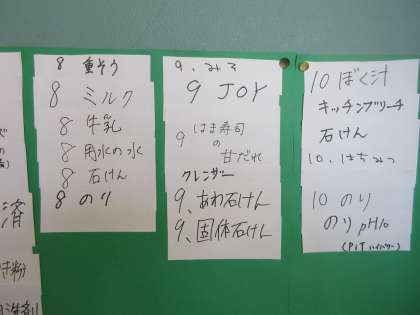 8 重そう
8 ミルク
8 牛乳
8 用水の水
8 石けん
8 のり
9、みそ
9 JOY
9 はま寿司
の
甘だれ
クレンザー
9、あわ石けん
9、固体石けん
10 ぼく汁
キッチンブリーチ
石けん
10、はちみつ
10 のり
のり pH10
(PiTハイパワー)
済
き粉
洗剤